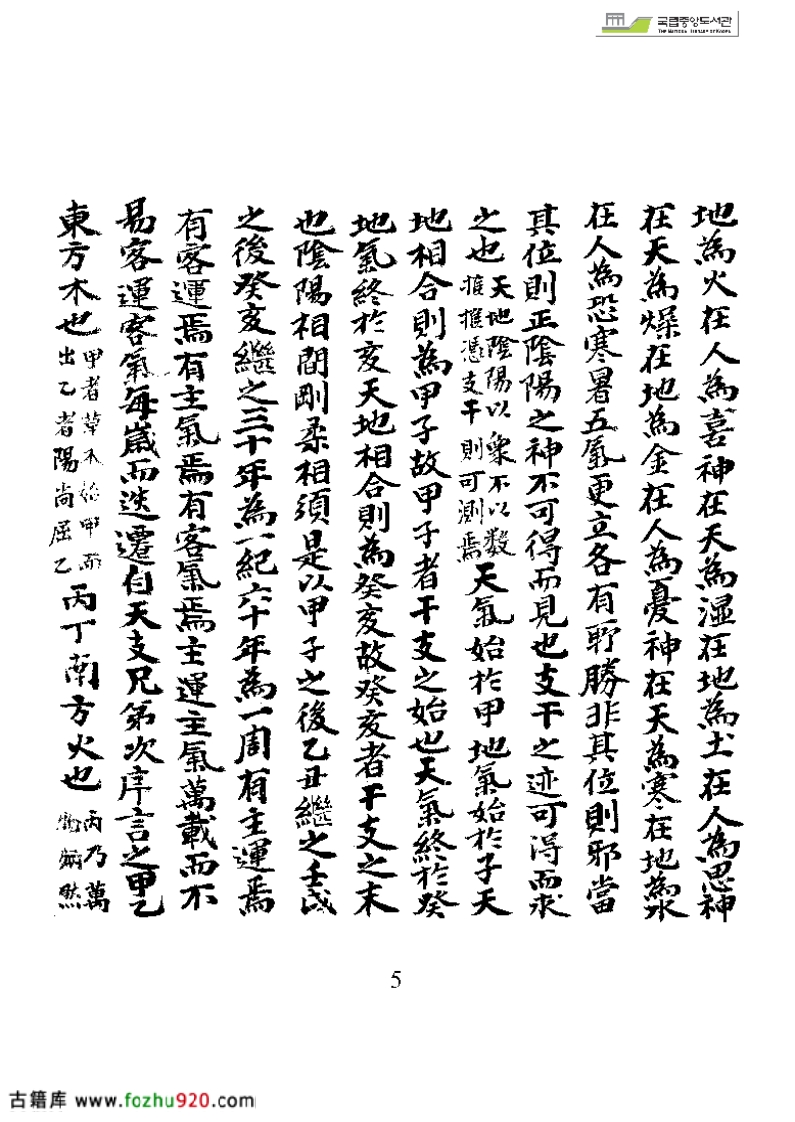 국립중앙도서관
THE NATIONAL LIBRARY OF KOREA
地為火在人為喜神在天為湿在地為土在人為思神
在天為燥在地為金在人為憂神在天為寒在地為水
在人為恐寒暑五氣更立各有所勝非其位則邪當
其位則正陰陽之神不可得而見也支干之迹可得而求
之也天地陰陽以象不以數推推憑支干則可測焉天氣始於甲地氣始於子天
地相合則為甲子故甲子者干支之始也天氣終於癸
地氣終於亥天地相合則為癸亥故癸亥者干支之末
也陰陽相間剛柔相須是以甲子之後乙丑繼之壬戌
之後癸亥繼之三十年為一紀六十年為一周有主運焉
有客運焉有主氣焉有客氣焉主運主氣萬載而不
易客運客氣每歲而迭遷自天支兄第次序言之甲乙
東方木也甲者草木始甲而出乙者陽尚屈乙丙丁南方火也丙乃萬物炳然
5
古籍库 www.fozhu920.com